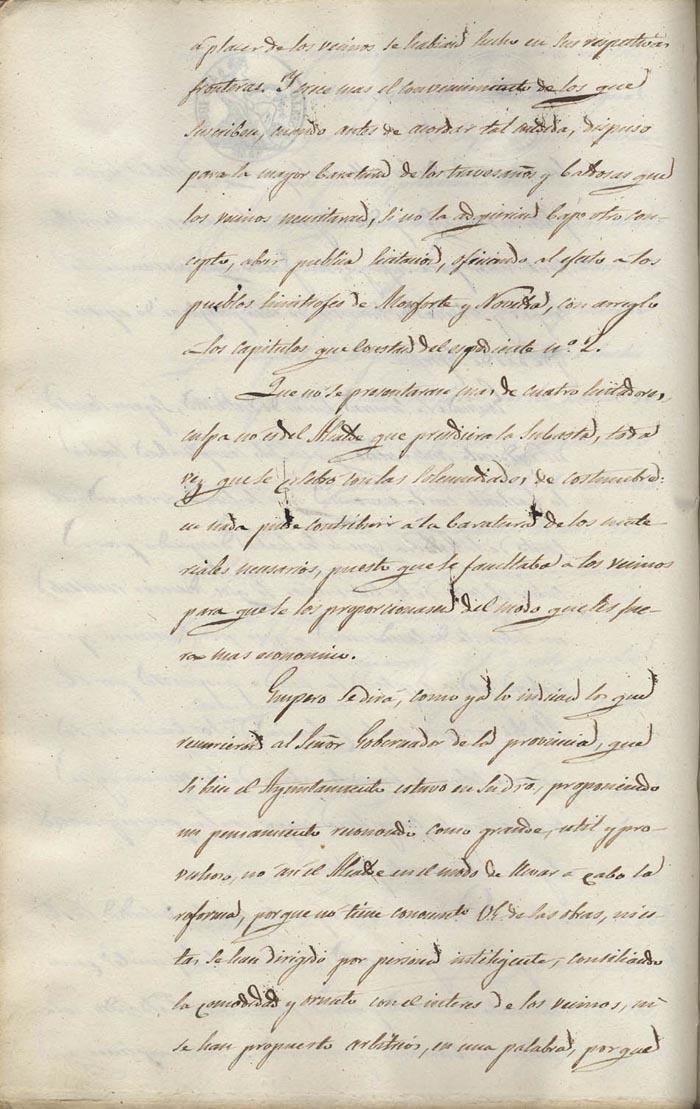 á placer de los vecinos se habian hecho en sus respectivas
fronteras. Y crece mas el convencimiento de los que
suscriben, cuando antes de acordar tal medida, dispuso
para la mayor baratura de los travesaños y baldosas que
los vecinos necesitaran, si no la adquirian bajo otro con-
cepto, abrir publica licitacion, oficiando al efecto a los
pueblos limitrofes de Monforte y Novelda, con arreglo
a los capitulos que constan del espediente nº. 2.
Que no se presentaran mas de cuatro licitadores,
culpa no es del Alcalde que presidiera la subasta, toda
vez que se celebró con las solemnidades de costumbre:
en nada pudo contribuir á la baratura de los mate-
riales necesarios, puesto que se facultaba á los vecinos
para que se los proporcionasen del modo que les fue-
ra mas economico.
Empero se dirá, como ya lo indican los que
recurrieron al Señor Gobernador de la provincia, que
si bien el Ayuntamiento estuvo en su dro, proponiendo
un pensamiento reconocido como grande, util y pro-
vechoso, no asi el Alcalde en el modo de llevar á cabo la
reforma, porque no tiene conocimto de las obras, ni es-
tas se han dirigido por persona inteligente, conciliando
la comodidad y ornato con el interes de los vecinos, ni
se han propuesto arbitrios, en una palabra, porque